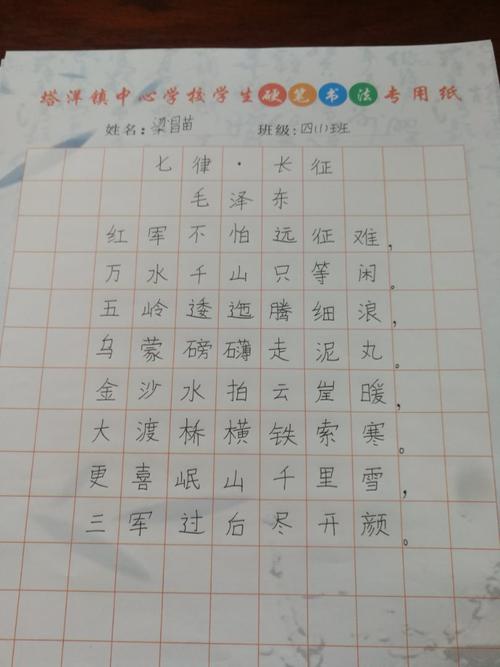 塔洋镇中心学校学生硬笔书法专用纸
姓名:梁昌苗 班级:四(1)班
七律·长征
毛泽东
红军不怕远征难,
万水千山只等闲。
五岭逶迤腾细浪,
乌蒙磅礴走泥丸。
金沙水拍云崖暖,
大渡桥横铁索寒。
更喜岷山千里雪,
三军过后尽开颜。